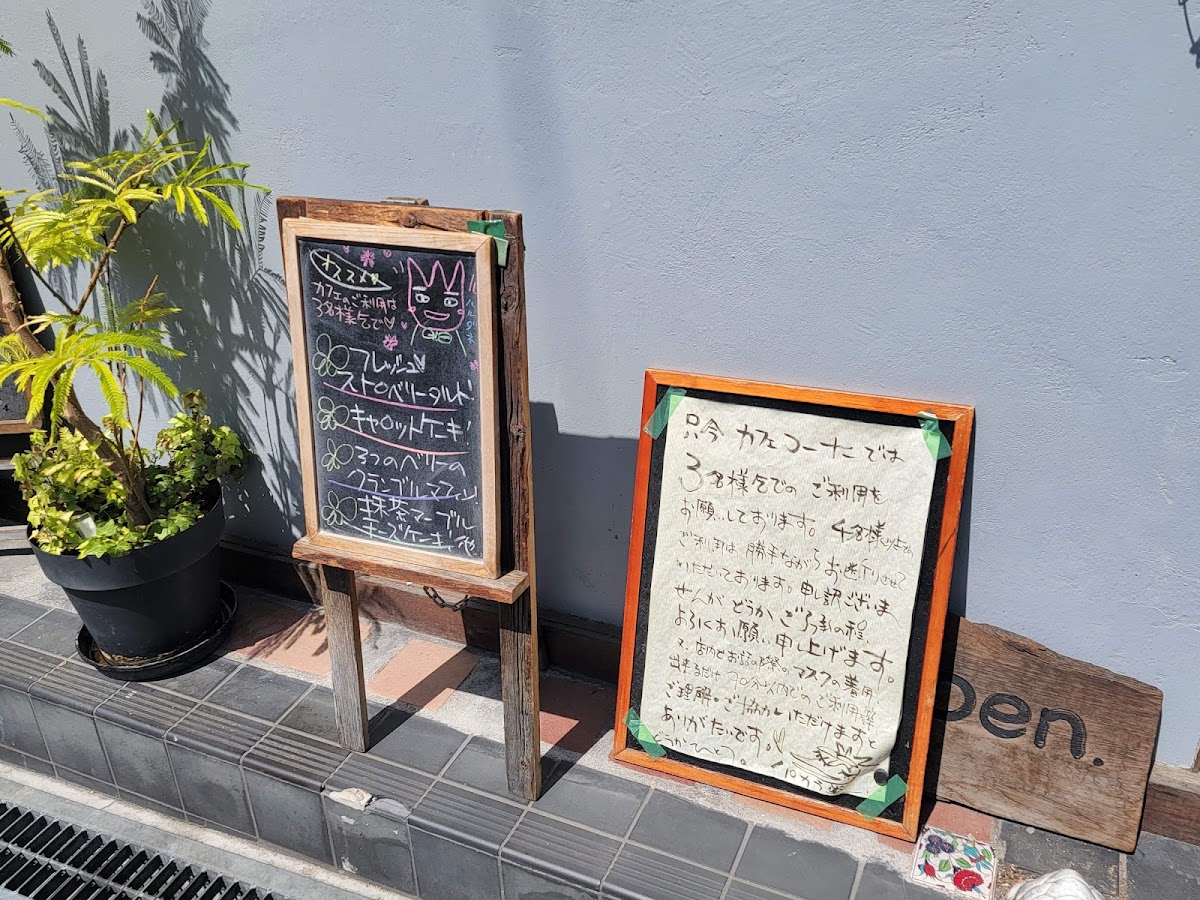 オススメ
カフェのご利用は
3名様迄で♡
フレッシュ
ストロベリータルト
キャロットケーキ
3つのベリーの
クランブルマフィン
抹茶マーブル
チーズケーキ 他
只今 カフェコーナーでは
3名様迄での ご利用を
お願いしております。4名様以上での
ご利用は 勝手ながら お断りさせて
いただいております。申し訳ございま
せんが どうか ご了承の程、
よろしくお願い申し上げます。
店内とお話の際のマスクの着用
出来るだけ 90分以内でのご利用等
ご理解・ご協力いただけますと
ありがたいです。
pen.